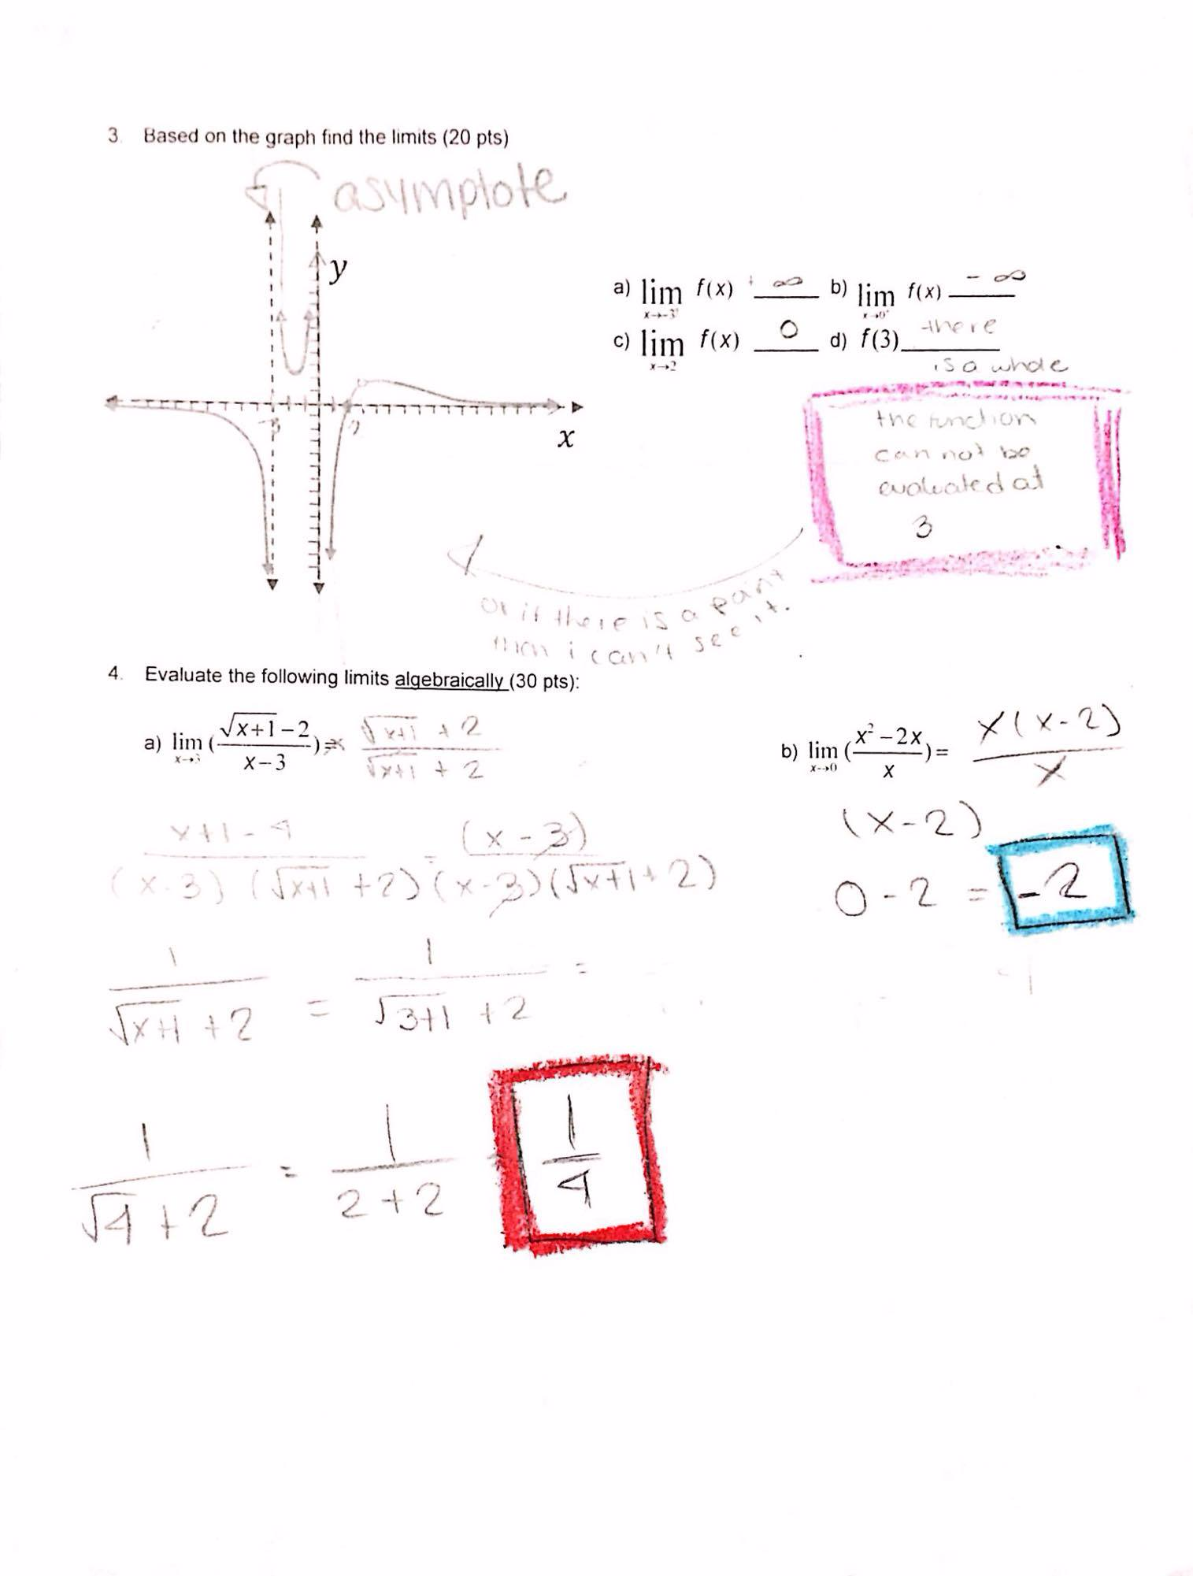 3. Based on the graph find the limits (20 pts)
asymptote
y
x
-3
2
a) lim f(x) + ∞ b) lim f(x) - ∞
x→-3⁺ x→0⁺
c) lim f(x) 0 d) f(3) there
x→2 is a whole
the function
can not be
evaluated at
3
or if there is a point
then i can't see it.
4. Evaluate the following limits algebraically (30 pts):
a) lim (√x+1 - 2 / x-3) = x √x+1 + 2 / √x+1 + 2
x→3
x+1-4 / (x-3) (√x+1 +2) = (x-3) / (x-3)(√x+1 + 2)
1 / √x+1 + 2 = 1 / √3+1 + 2 =
1 / √4 + 2 = 1 / 2+2 = 1 / 4
b) lim (x² - 2x / x) = x(x-2) / x
x→0
(x-2)
0-2 = -2